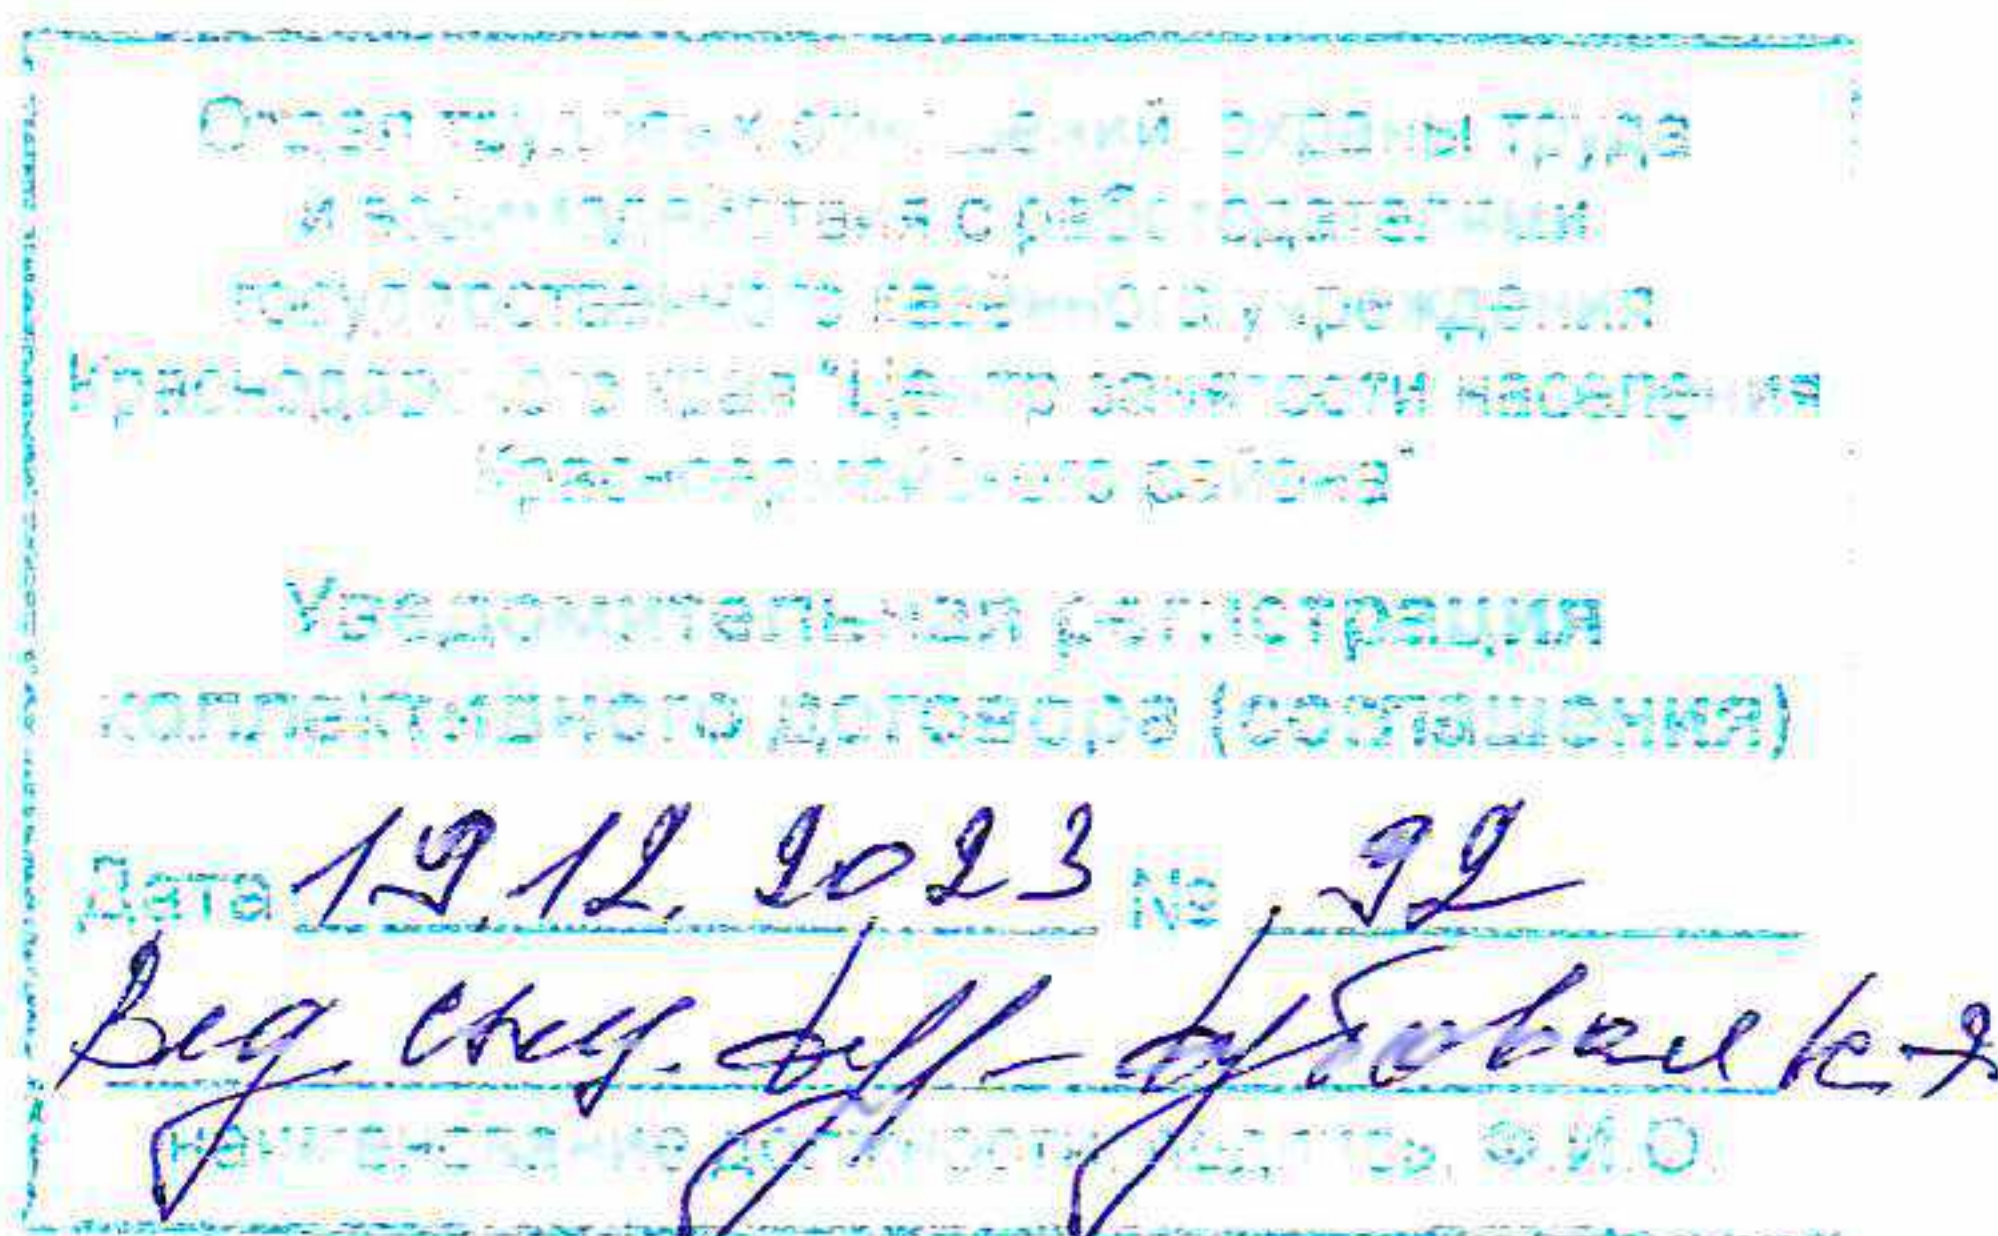 Отдел трудовых отношений, охраны труда
и взаимодействия с работодателями
государственного казенного учреждения
Краснодарского края "Центр занятости населения
Красноармейского района"
Уведомительная регистрация
коллективного договора (соглашения)
Дата 19.12.2023 № 92
Вед. спец.
наименование должности, подпись, Ф.И.О.